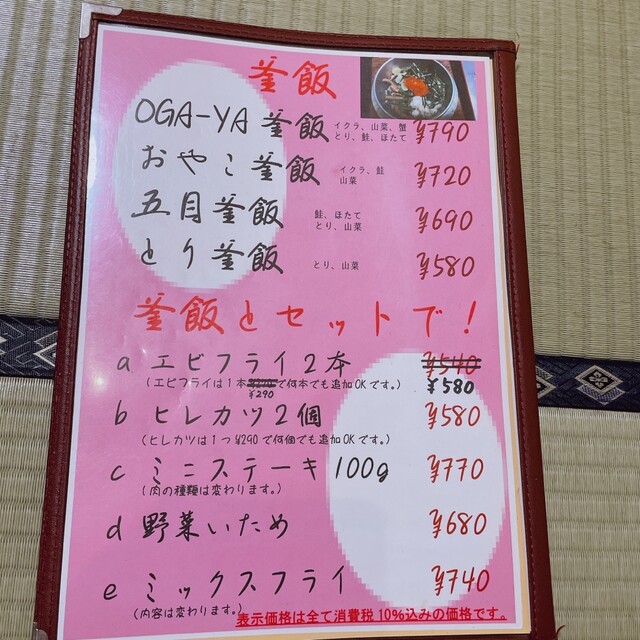 釜飯
OGA-YA 釜飯 イクラ、山菜、蟹 とり、鮭、ほたて ¥790
おやこ釜飯 イクラ、鮭 山菜 ¥720
五目釜飯 鮭、ほたて とり、山菜 ¥690
とり釜飯 とり、山菜 ¥580
釜飯とセットで!
a エビフライ2本 ¥540 ¥580
(エビフライは1本 ¥290 で何本でも追加OKです。)
b ヒレカツ2個 ¥580
(ヒレカツは1つ¥290で何個でも追加OKです。)
c ミニステーキ 100g ¥770
(肉の種類は変わります。)
d 野菜いため ¥680
e ミックスフライ ¥740
(内容は変わります。)
表示価格は全て消費税10%込みの価格です。